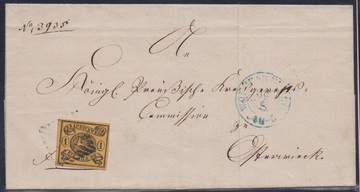 No, 3935
An
Königl. Preußische Kreisgerichts
Commission
zu
Osterwieck.
1 1